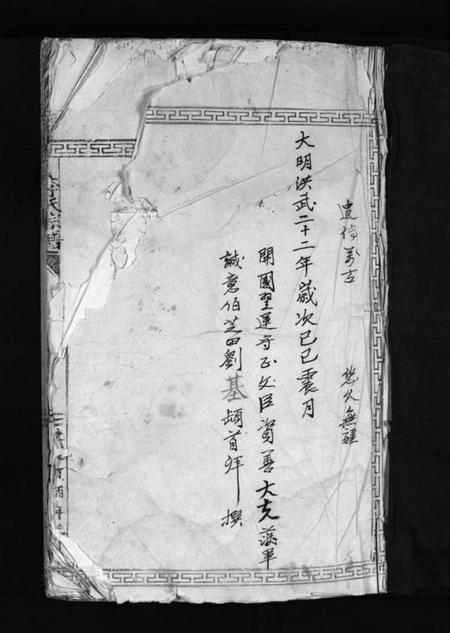 遺傳萬古
悠久無疆
大明洪武二十二年歲次己巳震月
開國翌運守正文臣資善大夫護軍
誠意伯芝田劉基頓首拜撰
氏宗譜